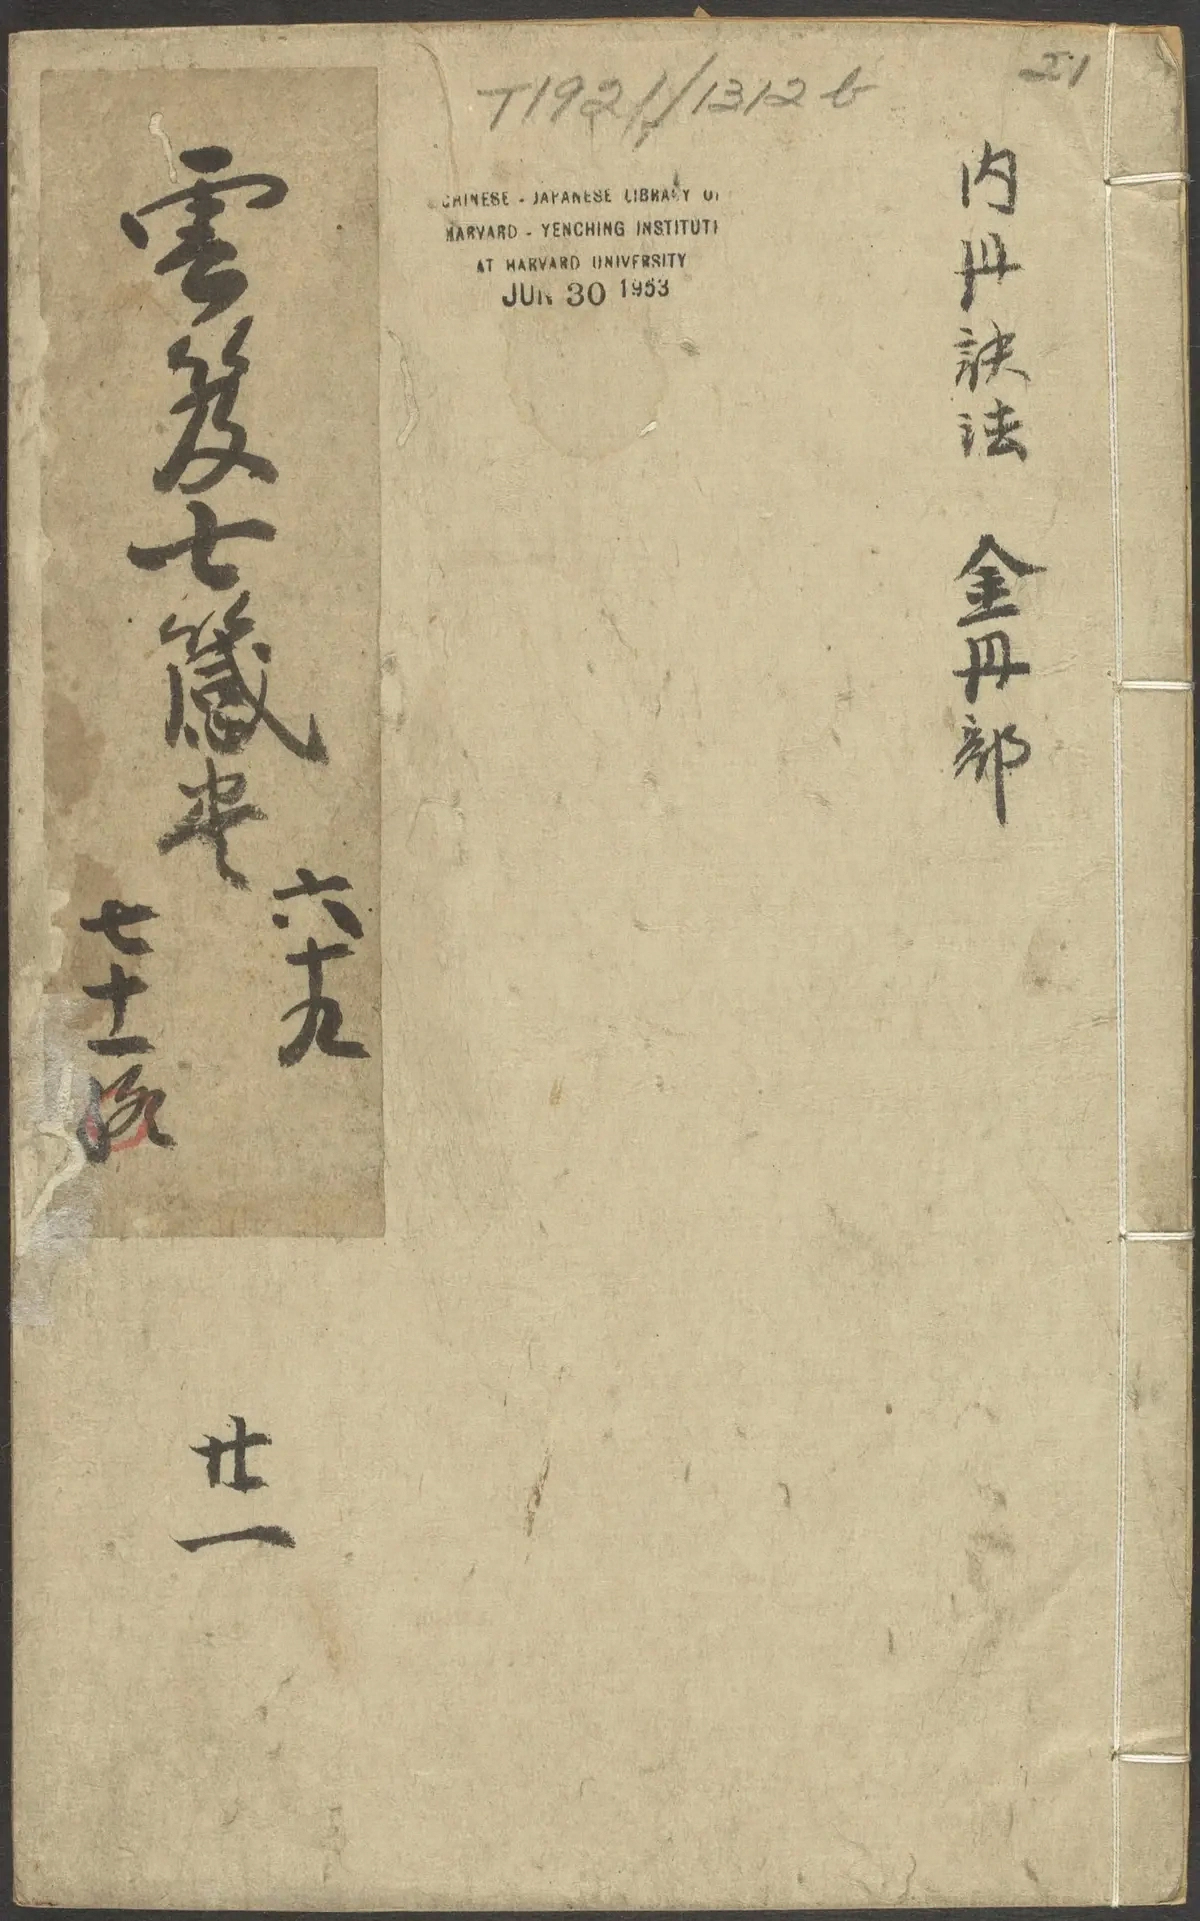 21
T1921/1312b
CHINESE - JAPANESE LIBRARY OF
HARVARD - YENCHING INSTITUTE
AT HARVARD UNIVERSITY
JUN 30 1953
内丹訣法 金丹部
雲笈七籤卷
六十九
七十一
廿一